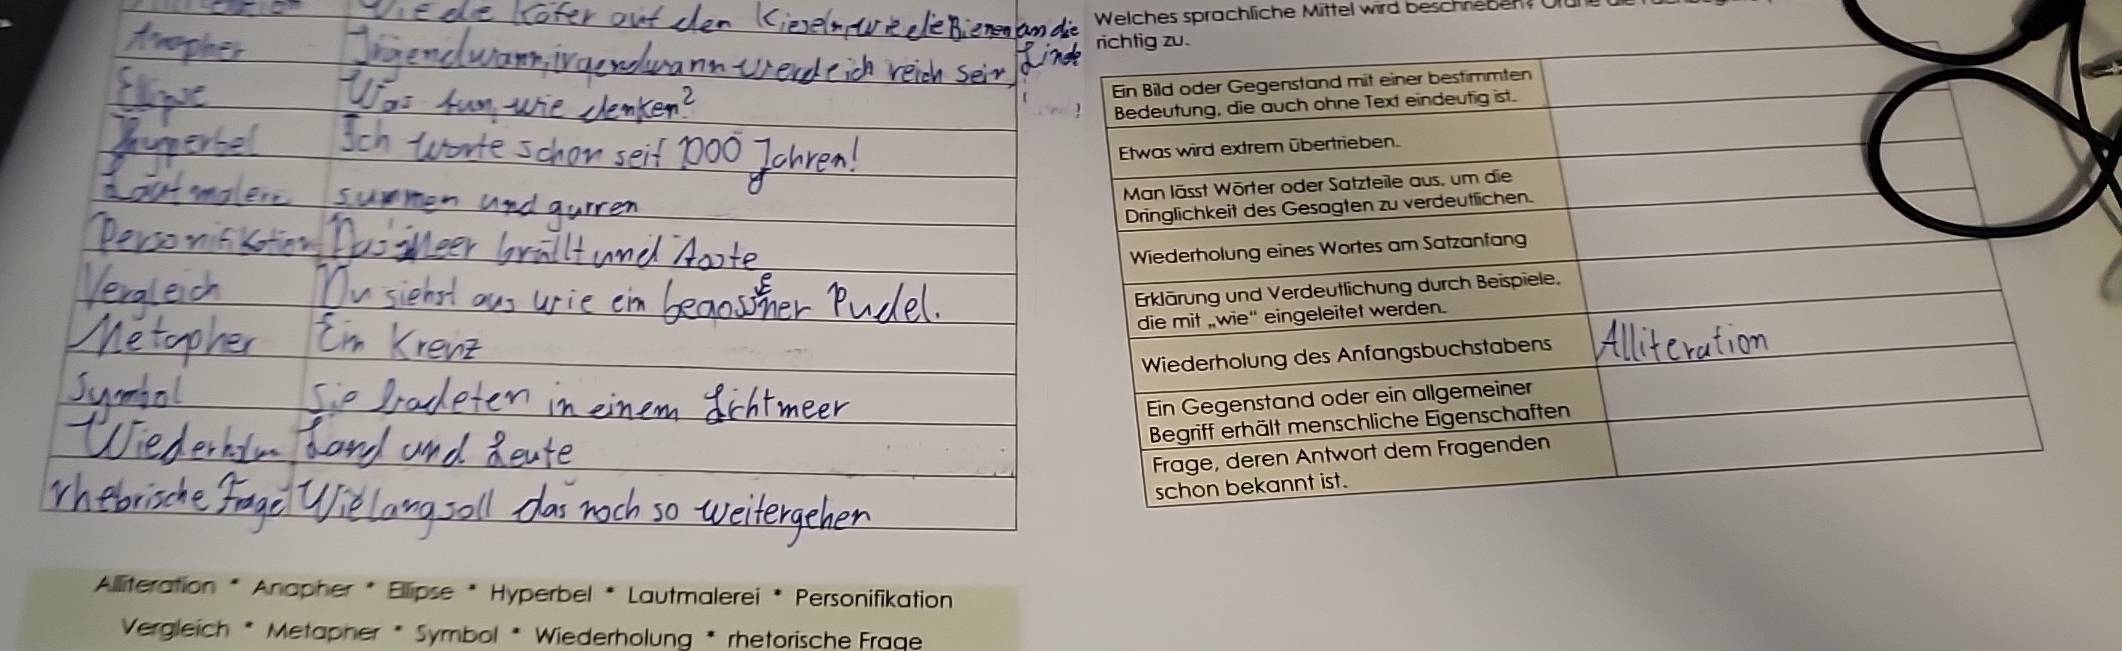 Wie die Käfer auf den Kieseln, wie die Bienen an die Linde
Anapher Irgendwann, irgendwann werde ich reich sein
Ellipse Was tun, wie denken?
Hyperbel Ich warte schon seit 1000 Jahren!
Lautmalerei summen und gurren
Personifikation Das Meer brüllt und toste
Vergleich Du siehst aus wie ein begossener Pudel.
Metapher Ein Kreuz
Symbol Sie badeten in einem Lichtmeer
Wiederholun Land und Leute
rhetorische Frage Wie lang soll das noch so weitergehen
Alliteration * Anapher * Ellipse * Hyperbel * Lautmalerei * Personifikation
Vergleich * Metapher * Symbol * Wiederholung * rhetorische Frage
Welches sprachliche Mittel wird beschrieben?
richtig zu.
Ein Bild oder Gegenstand mit einer bestimmten
Bedeutung, die auch ohne Text eindeutig ist.
Etwas wird extrem übertrieben.
Man lässt Wörter oder Satzteile aus, um die
Dringlichkeit des Gesagten zu verdeutlichen.
Wiederholung eines Wortes am Satzanfang
Erklärung und Verdeutlichung durch Beispiele,
die mit „wie“ eingeleitet werden.
Wiederholung des Anfangsbuchstabens Alliteration
Ein Gegenstand oder ein allgemeiner
Begriff erhält menschliche Eigenschaften
Frage, deren Antwort dem Fragenden
schon bekannt ist.